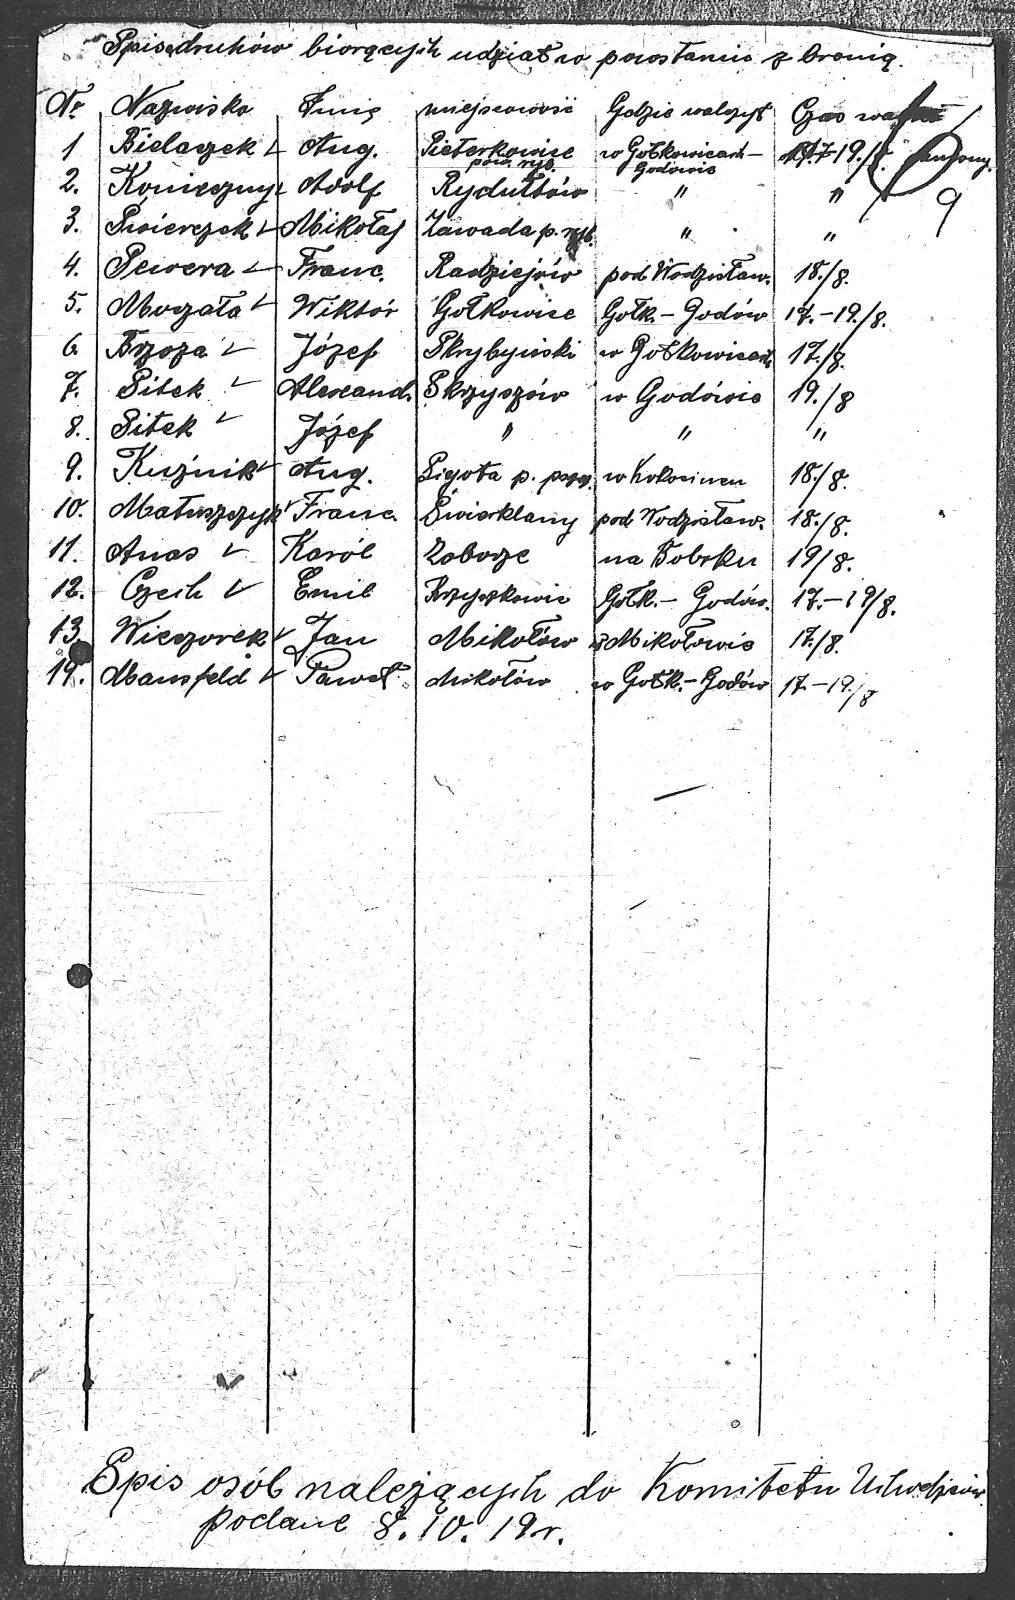 Spis druhów biorących udział w powstaniu z bronią.
No Nazwisko Imię miejscowość Gdzie walczył Czas
1 Bielaczek Aug. Pietrkowice pow. ryb. w Gołkowicach - Godowie 17-19./8.
2. Konieczny Adolf Rydułtów " " 9
3. Świerczek Mikołaj Zawada p. ryb. " "
4. Sewera Franc. Radziejów pod Wodzisław. 18./8.
5. Mogzała Wiktór Gołkowice Gołk. - Godów 17.-19./8.
6 Brzoza Józef Skrbyński w Gołkowicach 17./8.
7. Sitek Alexand. Skrzyszów w Godówie 19./8
8. Sitek Józef " " "
9. Kuźnik Aug. Ligota p. w Kokocincu 18./8.
10. Matuszczyk Franc. Świerklany pod Wodzisław. 18./8.
11. Anas Karól Zaborze na Bobrku 19/8.
12. Czech Emil Krzyżkowic Gołk. - Godów. 17.-19/8.
13 Wieczorek Jan Mikołów w Mikołowie 17./8.
14. Mansfeld Paweł Mikołów w Gołk. - Godów 17.-19./8
Spis osób należących do Komitetu Uchodźców.
podane 8. 10. 19 r.